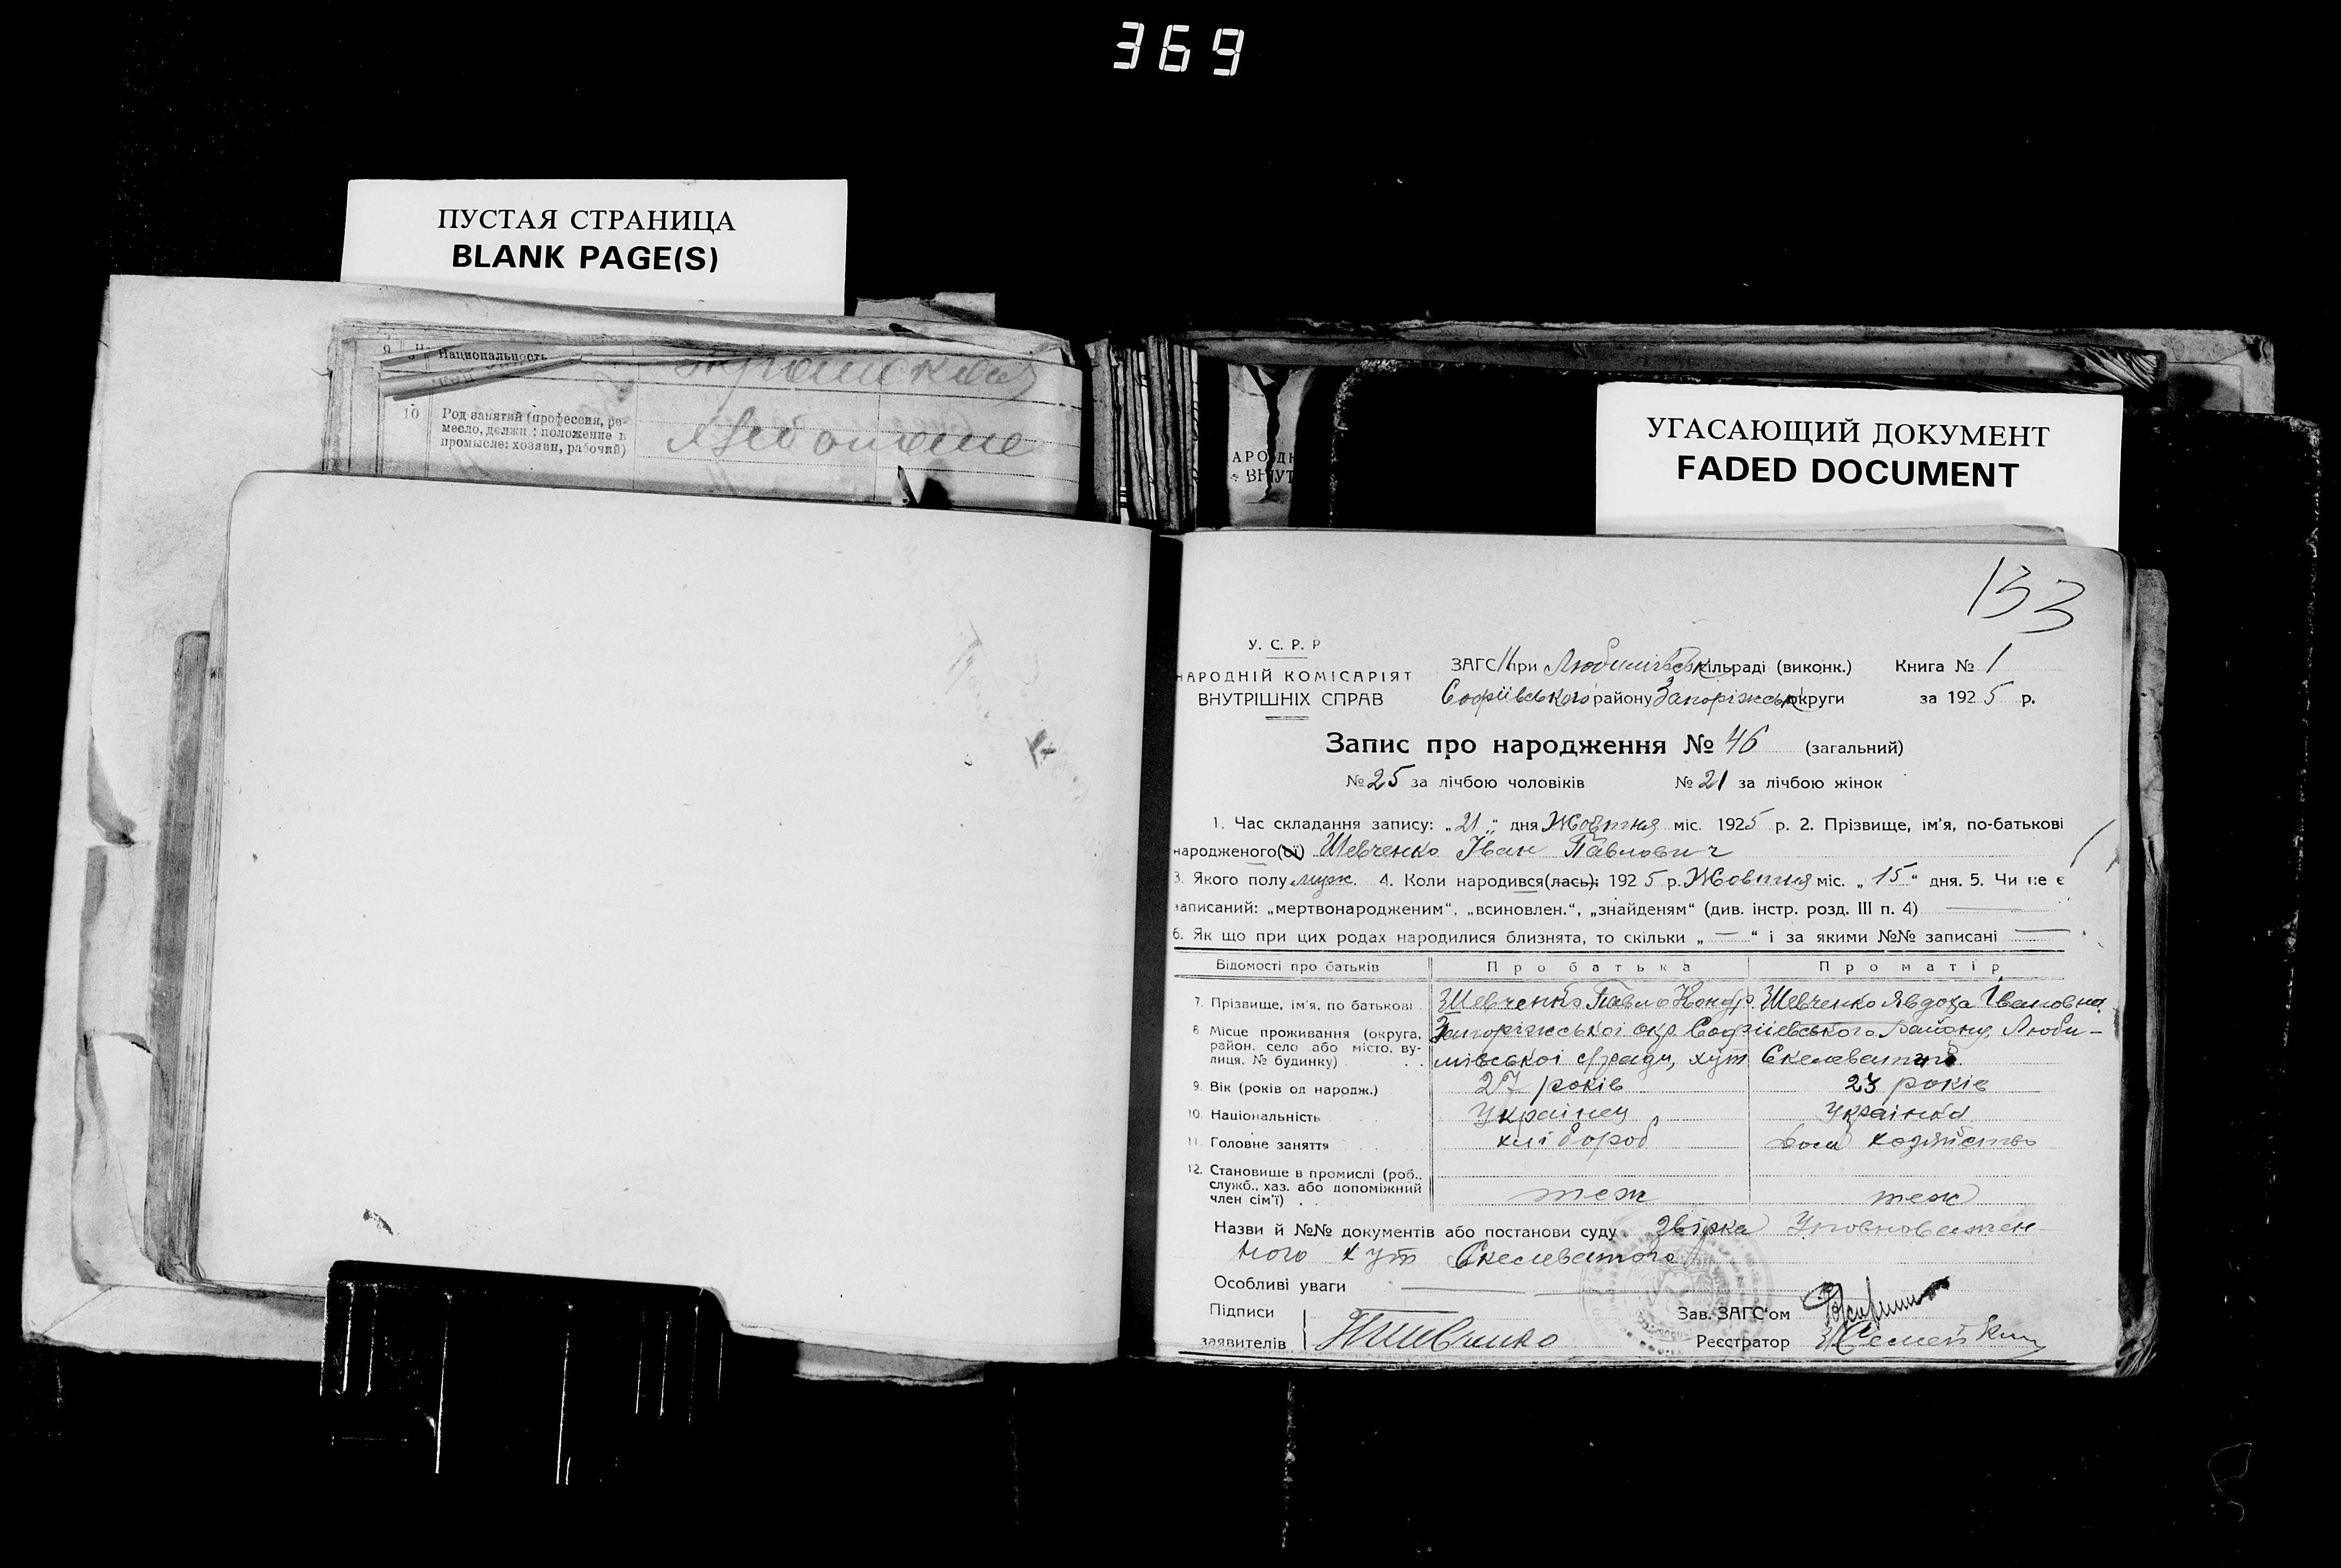 369
ПУСТАЯ СТРАНИЦА
BLANK PAGE(S)
9 Национальность
10 Род занятий (профессия, ре-
месло, должн.: положение в
промысле: хозяин, рабочий)
УГАСАЮЩИЙ ДОКУМЕНТ
FADED DOCUMENT
133
У. С. Р. Р
НАРОДНІЙ КОМІСАРІЯТ
ВНУТРІШНІХ СПРАВ
ЗАГС при Любимівськ сільраді (виконк.) Книга № 1
Софіївського району Запоріжськ округи за 1925 р.
Запис про народження № 46 (загальний)
№ 25 за лічбою чоловіків № 21 за лічбою жінок
1. Час складання запису: „21„ дня Жовтня міс. 1925 р. 2. Прізвище, ім'я, по-батькові
народженого(ої) Шевченко Іван Павлович
3. Якого полу муж. 4. Коли народився(лась): 1925 р. Жовтня міс. „15“ дня. 5. Чи не є
записаний: „мертвонародженим“, „всиновлен.“, „знайденям“ (див. інстр. розд. III п. 4)
6. Як що при цих родах народилися близнята, то скільки „—“ і за якими №№ записані
Відомості про батьків Про батька Про матір
7. Прізвище, ім'я, по батькові Шевченко Павло Кондр. Шевченко Явдоха Івановна
8 Місце проживання (округа, Запоріжської окр. Софіївського району, Люби-
район, село або місто, ву- мівської с/ради, хут Скелеватий
лиця, № будинку)
9. Вік (років од народж.) 27 років 23 років
10. Національність Українец Українка
11. Головне заняття хлібороб дом хозяйство
12. Становище в промислі (роб.,
служб., хаз. або допоміжний
член сім'ї) теж теж
Назви й №№ документів або постанови суду Звірка Уповноважен
ного хут Скелеватого
Особливі уваги
Підписи Зав. ЗАГС'ом
заявителів Шевченко Реєстратор